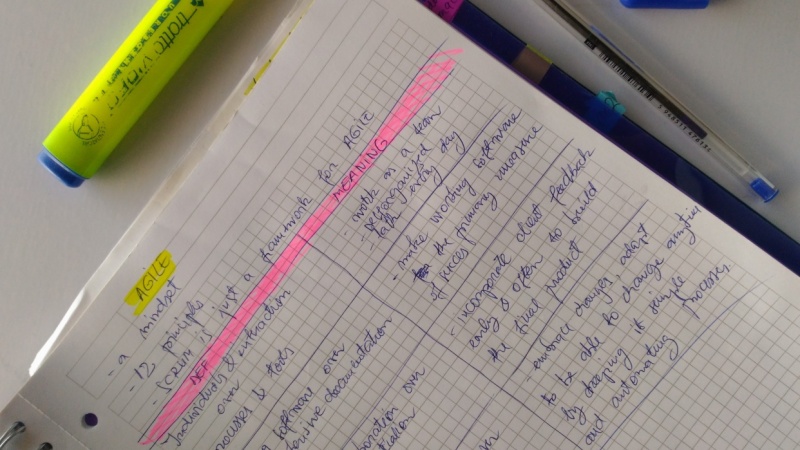 AGILE
- a mindset
- 12 principles
- SCRUM is just a framework for AGILE
DEF
MEANING
individuals & interaction
over
processes & tools
- work in a team
selforganised
talk every day
software over
documentation
- make working software
the primary measure
of succes
over
- incorporate client feedback
early & often to build
the final product
over
- embrace changes, adapt
to be able to change anytime
by keeping it simple
and automating processes
traffic